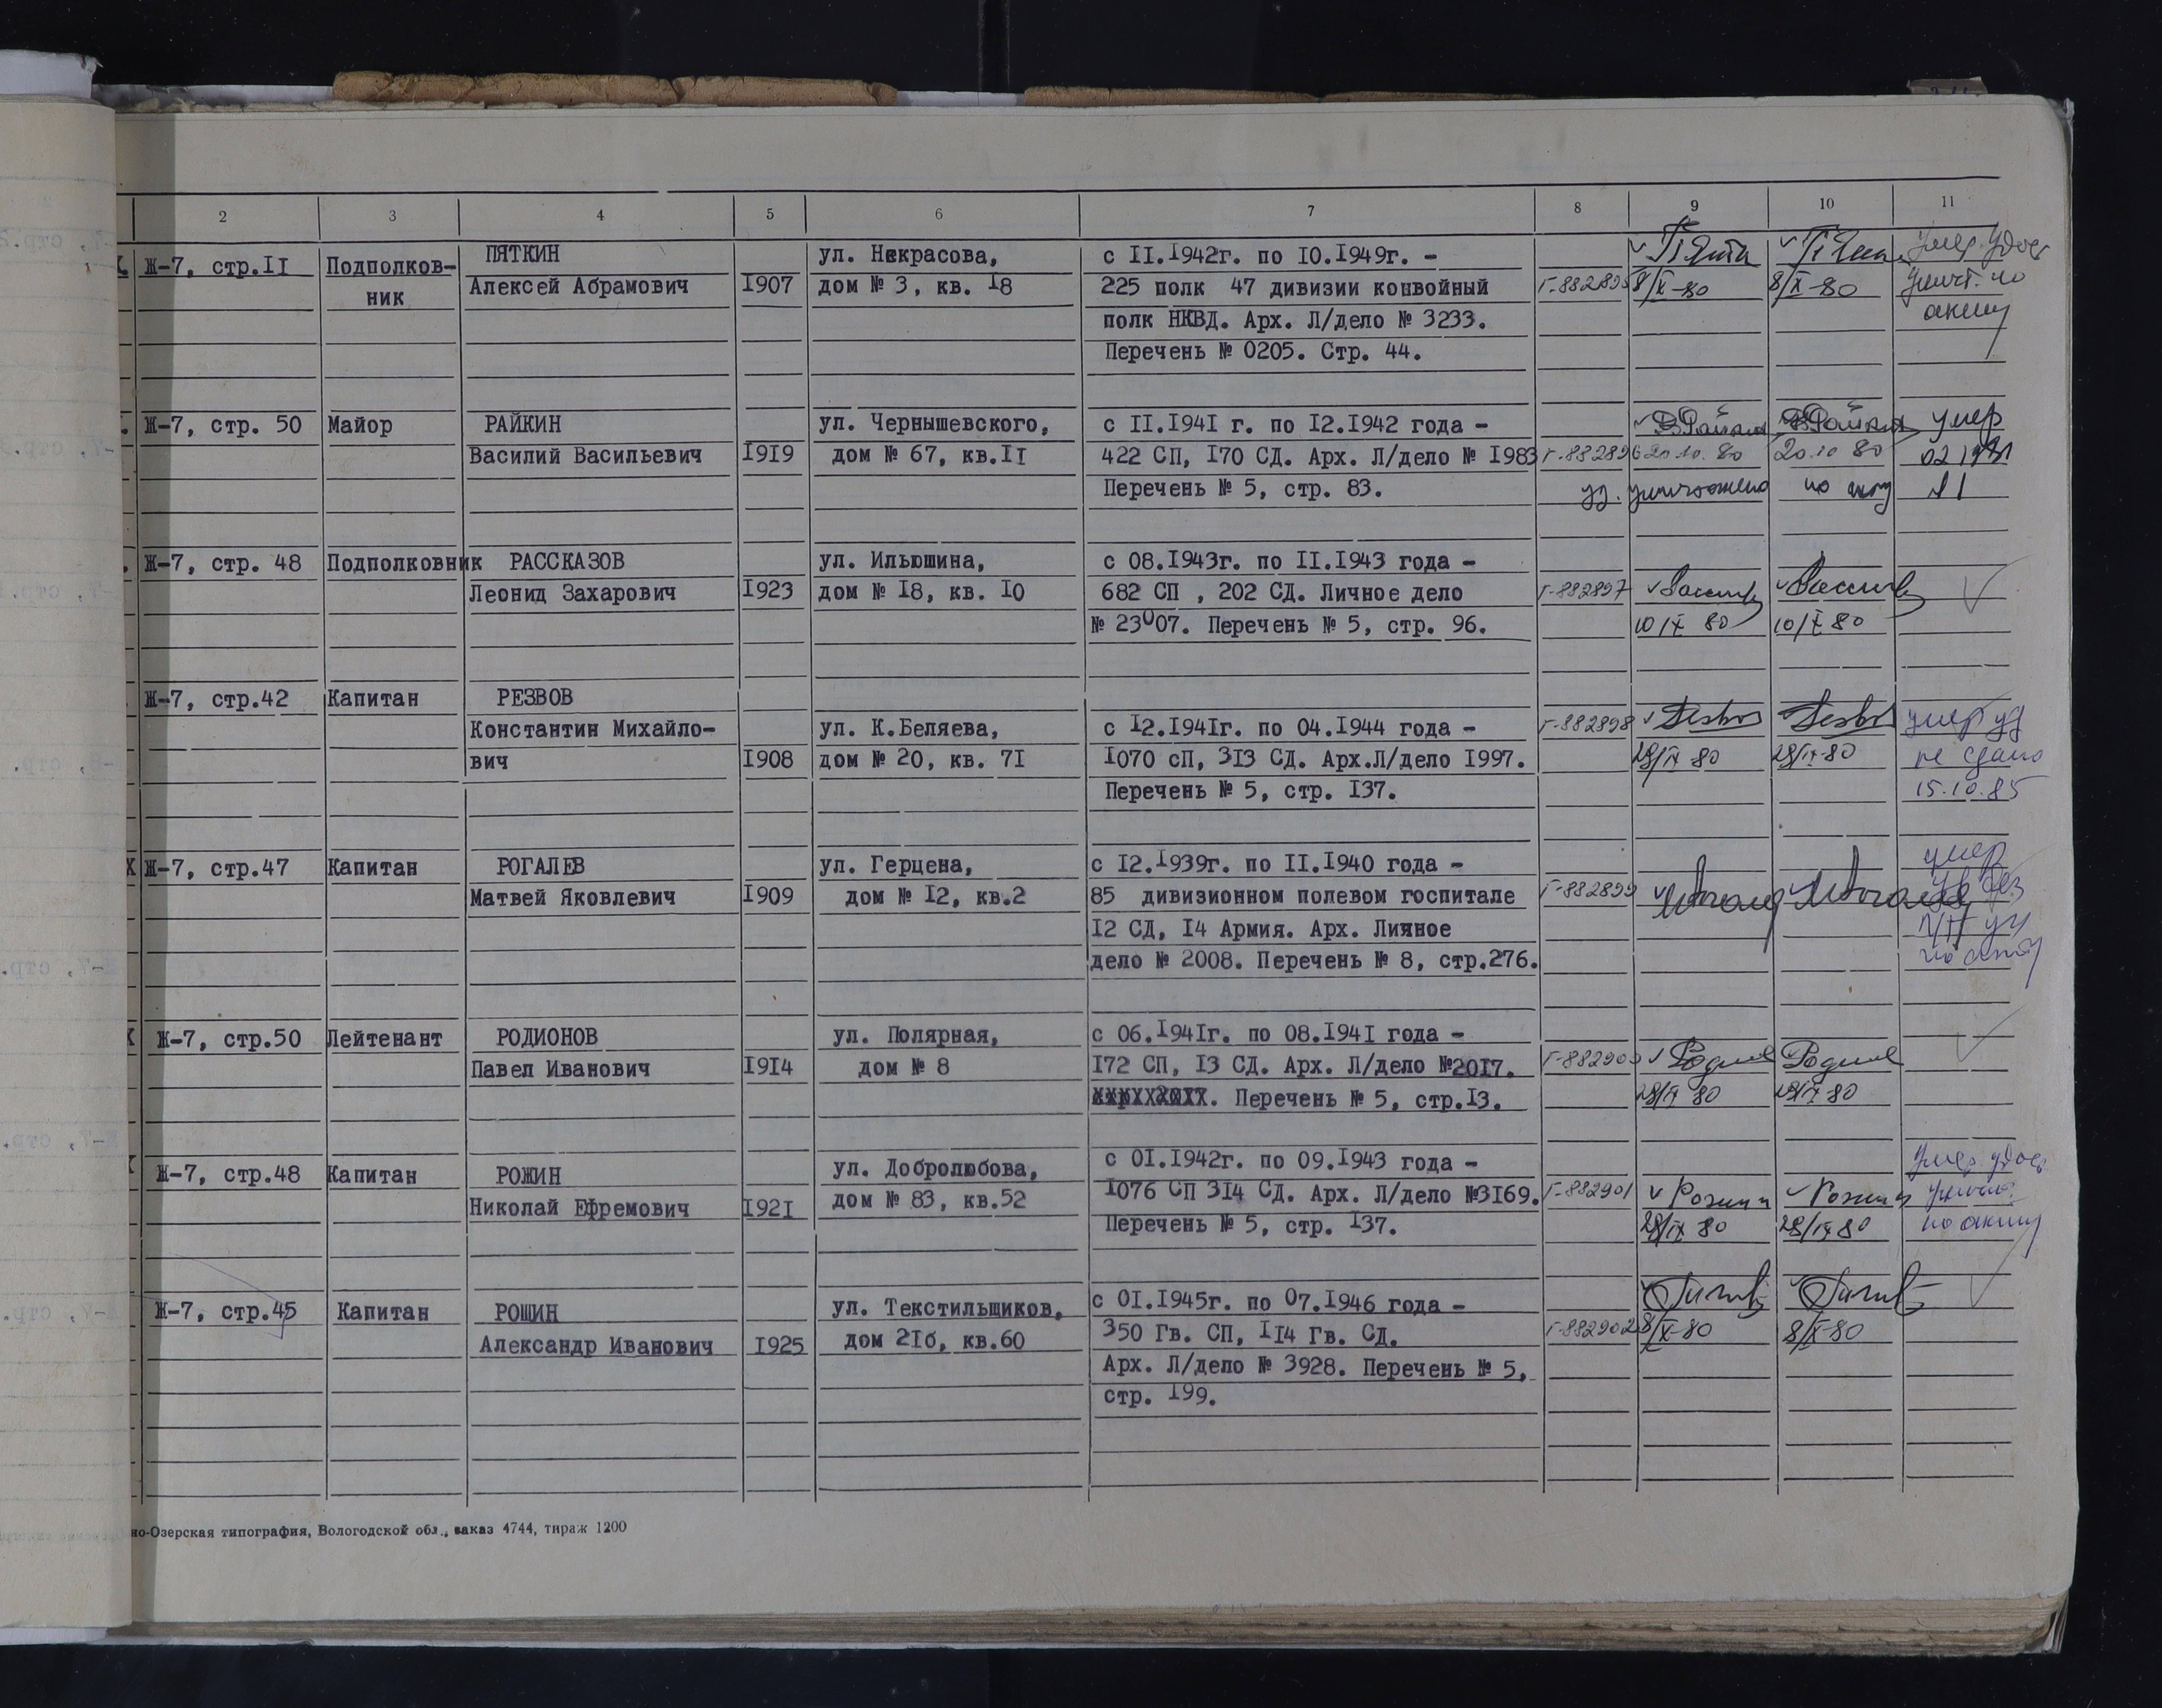 2 3 4 5 6 7 8 9 10 11
Ж-7, стр.II Подполков-
ник
ПЯТКИН
Алексей Абрамович
I907
ул. Некрасова,
дом № 3, кв. I8
с II.I942г. по I0.I949г. -
225 полк 47 дивизии конвойный
полк НКВД. Арх. Л/дело № 3233.
Перечень № 0205. Стр. 44.
Г-882895
8/X-80
8/X-80
умер. Удос
уничт. по
акту
Ж-7, стр. 50 Майор
РАЙКИН
Василий Васильевич
I9I9
ул. Чернышевского,
дом № 67, кв.II
с II.I94I г. по I2.I942 года -
422 СП, I70 СД. Арх. Л/дело № I983
Перечень № 5, стр. 83.
Г-882896
20.10.80
20.10 80
умер
уд. уничтожено по акту
Ж-7, стр. 48 Подполковник
РАССКАЗОВ
Леонид Захарович
I923
ул. Ильюшина,
дом № I8, кв. I0
с 08.I943г. по II.I943 года -
682 СП , 202 СД. Личное дело
№ 23007. Перечень № 5, стр. 96.
Г-882897
10/X 80
10/X 80
Ж-7, стр.42 Капитан
РЕЗВОВ
Константин Михайло-
вич
I908
ул. К.Беляева,
дом № 20, кв. 7I
с I2.I94Iг. по 04.I944 года -
I070 сП, 3I3 СД. Арх.Л/дело I997.
Перечень № 5, стр. I37.
Г-882898
28/IX 80
28/IX-80
умер уд
не сдано
15.10.85
Ж-7, стр.47 Капитан
РОГАЛЕВ
Матвей Яковлевич
I909
ул. Герцена,
дом № I2, кв.2
с I2.I939г. по II.I940 года -
85 дивизионном полевом госпитале
I2 СД, I4 Армия. Арх. Личное
дело № 2008. Перечень № 8, стр.276.
Г-882899
умер
по акту
Ж-7, стр.50 Лейтенант
РОДИОНОВ
Павел Иванович
I9I4
ул. Полярная,
дом № 8
с 06.I94Iг. по 08.I94I года -
I72 СП, I3 СД. Арх. Л/дело №20I7.
Перечень № 5, стр.I3.
Г-882900
28/IX 80
28/IX 80
Ж-7, стр.48 Капитан
РОЖИН
Николай Ефремович
I92I
ул. Добролюбова,
дом № 83, кв.52
с 0I.I942г. по 09.I943 года -
I076 СП 3I4 СД. Арх. Л/дело №3I69.
Перечень № 5, стр. I37.
Г-882901
Рожин
Рожин
28/IX 80
28/IX 80
умер. удос
по акту
Ж-7, стр.45 Капитан
РОШИН
Александр Иванович
I925
ул. Текстильщиков,
дом 2Iб, кв.60
с 0I.I945г. по 07.I946 года -
350 Гв. СП, II4 Гв. СД.
Арх. Л/дело № 3928. Перечень № 5,
стр. I99.
Г-882902
8/X-80
8/X-80
но-Озерская типография, Вологодской обл., заказ 4744, тираж 1200